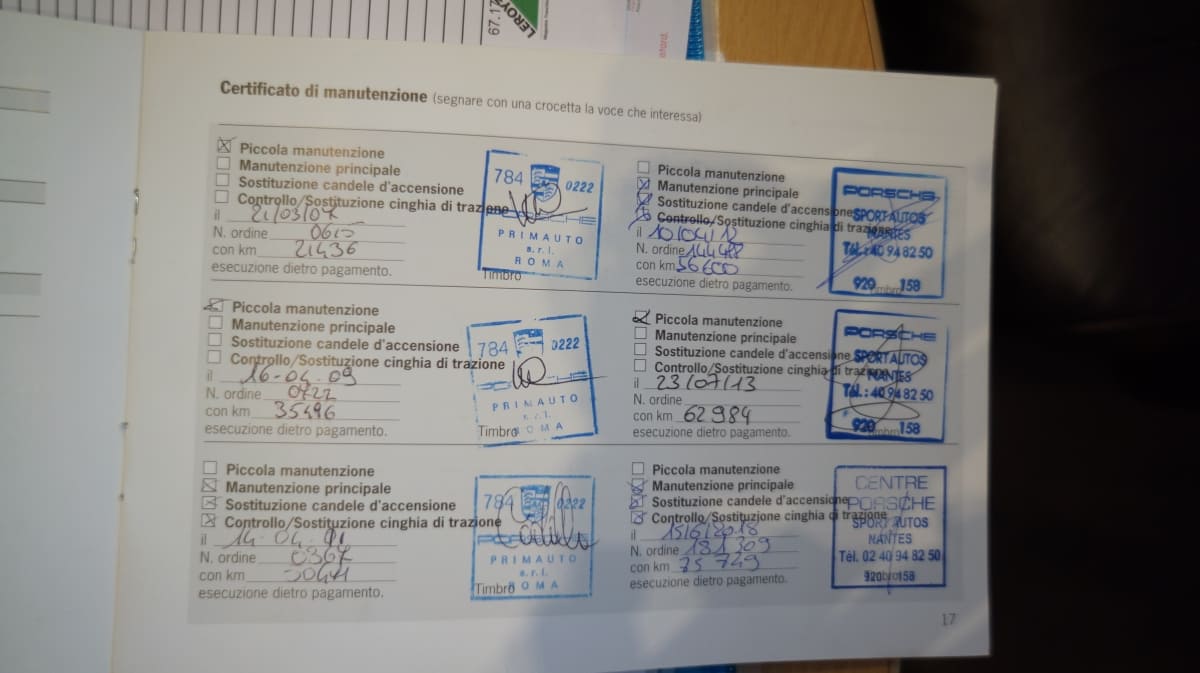 67.17
LEROY
Certificato di manutenzione (segnare con una crocetta la voce che interessa)
Piccola manutenzione
Manutenzione principale
Sostituzione candele d'accensione
Controllo/Sostituzione cinghia di trazione
il 21/03/07
N. ordine
con km 21436
esecuzione dietro pagamento.
784 0222
PRIMAUTO
s.r.l.
ROMA
Timbro
Piccola manutenzione
Manutenzione principale
Sostituzione candele d'accensione
Controllo/Sostituzione cinghia di trazione
il 16-04-09
N. ordine 0722
con km 35496
esecuzione dietro pagamento.
784 0222
PRIMAUTO
s.r.l.
ROMA
Timbro
Piccola manutenzione
Manutenzione principale
Sostituzione candele d'accensione
Controllo/Sostituzione cinghia di trazione
il
N. ordine 0367
con km
esecuzione dietro pagamento.
784 0222
PRIMAUTO
s.r.l.
ROMA
Timbro
Piccola manutenzione
Manutenzione principale
Sostituzione candele d'accensione
Controllo/Sostituzione cinghia di trazione
il 10/04/12
N. ordine 144488
con km 56600
esecuzione dietro pagamento.
PORSCHE
SPORT AUTOS
NANTES
Tél.: 40 94 82 50
920 158
Timbro
Piccola manutenzione
Manutenzione principale
Sostituzione candele d'accensione
Controllo/Sostituzione cinghia di trazione
il 23/07/13
N. ordine
con km 62984
esecuzione dietro pagamento.
PORSCHE
SPORT AUTOS
NANTES
Tél.: 40 94 82 50
920 158
Timbro
Piccola manutenzione
Manutenzione principale
Sostituzione candele d'accensione
Controllo/Sostituzione cinghia di trazione
il 15/6/2018
N. ordine 181309
con km 75749
esecuzione dietro pagamento.
CENTRE
PORSCHE
SPORT AUTOS
NANTES
Tél. 02 40 94 82 50
920 158
17